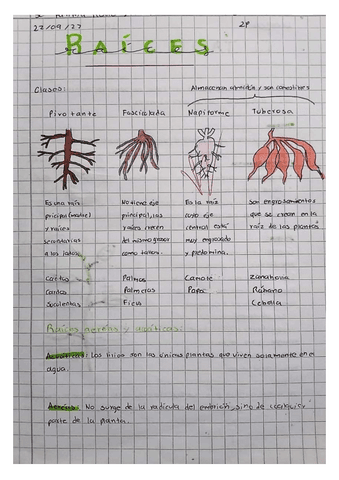 27/09/22
RAÍCES
Clases:
Almacenan almidón y son comestibles
Pivotante Fasciculada Napiforme Tuberosa
Es una raíz
principal (madre)
y raíces
secundarias
a los lados.
No tiene eje
principal, las
raíces crecen
del mismo grosor
como
Es la raíz
cuyo eje
central está
muy engrosado
y predomina.
Son engrosamientos
que se crean en la
raíz de las plantas
Cactus Palmas Camote Zanahoria
Cardos Palmeras Papa Rábano
Suculentas Ficus Cebolla
Raíces aéreas y acuáticas:
Acuáticas: Los lirios son las únicas plantas que viven solamente en el
agua.
Aéreas: No surge de la radícula del embrión, sino de cualquier
parte de la planta.